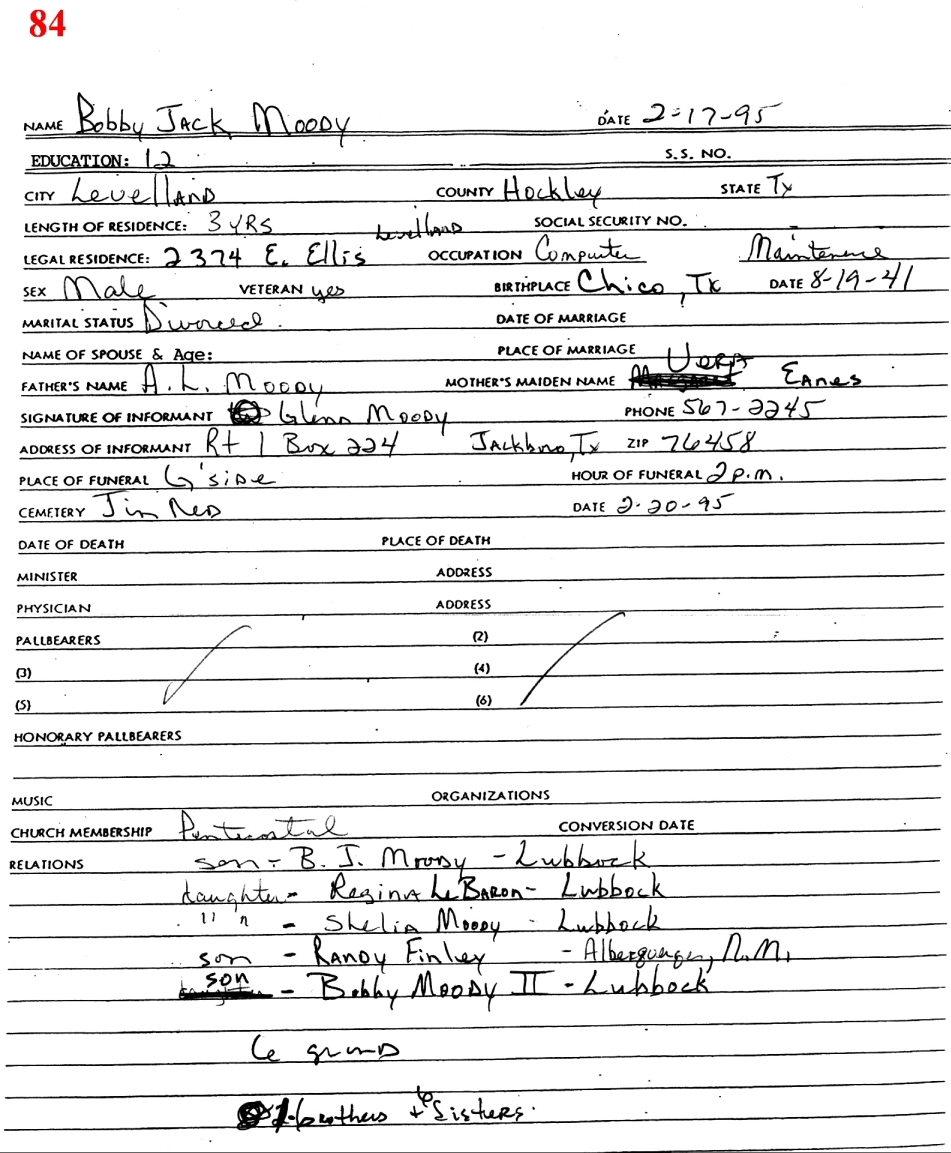 84
NAME Bobby Jack Moody DATE 2-17-95
EDUCATION: 12 S.S. NO.
CITY Levelland COUNTY Hockley STATE Tx
LENGTH OF RESIDENCE: 3 YRS SOCIAL SECURITY NO.
LEGAL RESIDENCE: 2374 E. Ellis Levelland OCCUPATION Computer Maintenence
SEX Male VETERAN yes BIRTHPLACE Chico, TX DATE 8-19-41
MARITAL STATUS Divorced. DATE OF MARRIAGE
NAME OF SPOUSE & Age: PLACE OF MARRIAGE
FATHER'S NAME A. L. Moody MOTHER'S MAIDEN NAME Vera Eanes
SIGNATURE OF INFORMANT Glenn Moody PHONE 567-2245
ADDRESS OF INFORMANT Rt 1 Box 224 Jackboro, Tx ZIP 76458
PLACE OF FUNERAL G'side HOUR OF FUNERAL 2 p.m.
CEMETERY Jim Ned DATE 2-20-95
DATE OF DEATH PLACE OF DEATH
MINISTER ADDRESS
PHYSICIAN ADDRESS
PALLBEARERS (2)
(3) (4)
(5) (6)
HONORARY PALLBEARERS
MUSIC ORGANIZATIONS
CHURCH MEMBERSHIP Pentecostal CONVERSION DATE
RELATIONS son - B. J. Moody - Lubbock
daughter - Regina LeBaron - Lubbock
" " - Shelia Moody - Lubbock
son - Randy Finley - Alberquerque, N.M.
son - Bobby Moody II - Lubbock
6 grand
brothers + 6 Sisters.